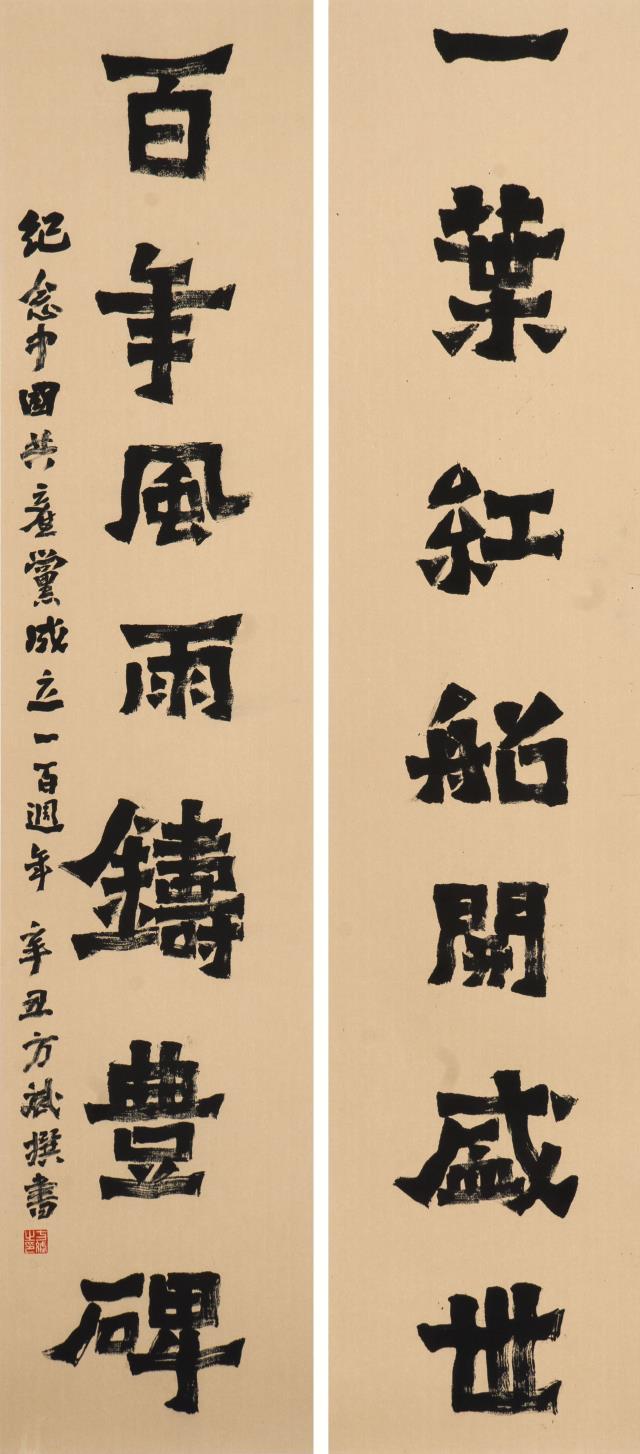 一葉紅船開盛世
百年風雨鑄豐碑
紀念中國共產黨成立一百週年 辛丑方斌撰書